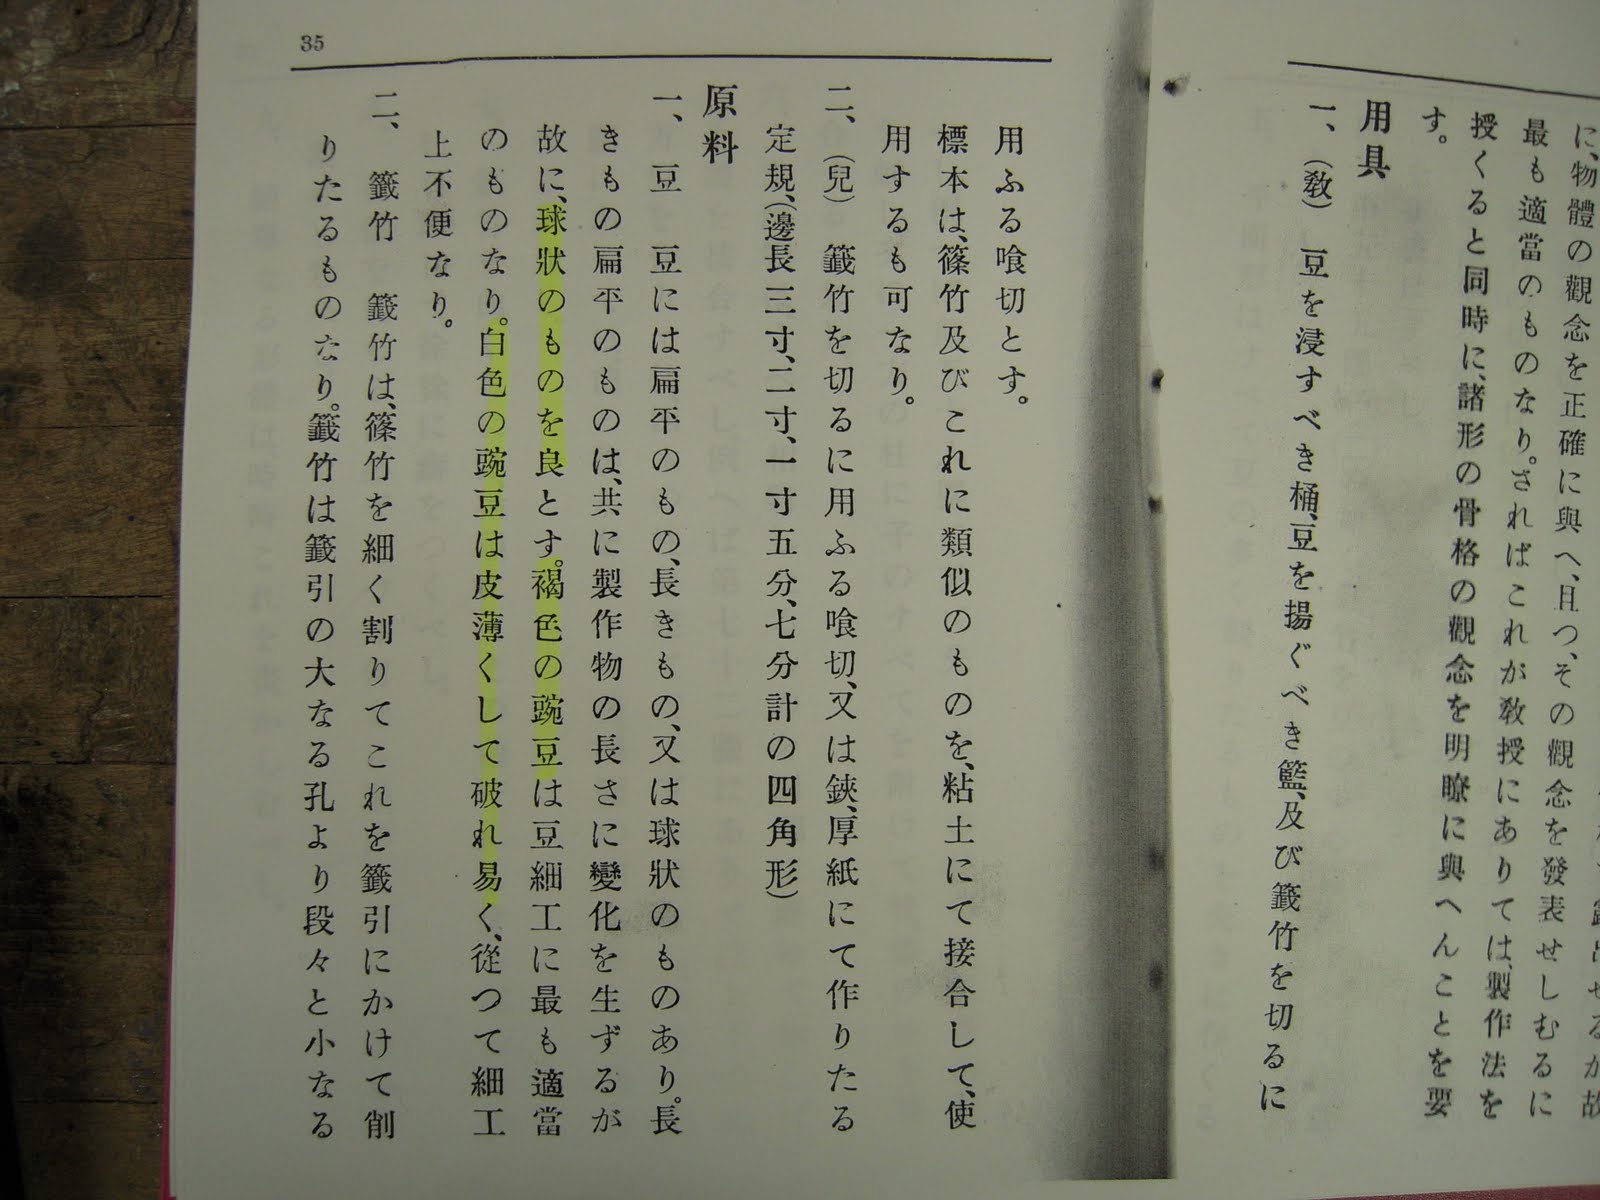 に、物體の觀念を正確に與へ、且つ、その觀念を發表せしむるに
最も適當のものなり。さればこれが敎授にありては、製作法を
授くると同時に、諸形の骨格の觀念を明瞭に與へんことを要
す。
用具
一、(敎) 豆を浸すべき桶、豆を揚ぐべき籃、及び籤竹を切るに
35
用ふる喰切とす。
標本は、篠竹及びこれに類似のものを、粘土にて接合して、使
用するも可なり。
二、(兒) 籤竹を切るに用ふる喰切、又は鋏、厚紙にて作りたる
定規、(邊長三寸、二寸、一寸五分、七分計の四角形)
原料
一、豆 豆には扁平のもの、長きもの、又は球狀のものあり。長
きもの扁平のものは、共に製作物の長さに變化を生ずるが
故に、球狀のものを良とす。褐色の豌豆は豆細工に最も適當
のものなり。白色の豌豆は皮薄くして破れ易く、從つて細工
上不便なり。
二、籤竹 籤竹は、篠竹を細く割りてこれを籤引にかけて削
りたるものなり。籤竹は籤引の大なる孔より段々と小なる